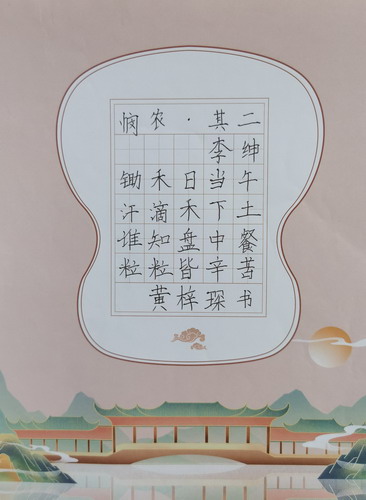 悯农·其二
李绅
锄禾日当午
汗滴禾下土
谁知盘中餐
粒粒皆辛苦
黄梓琛书